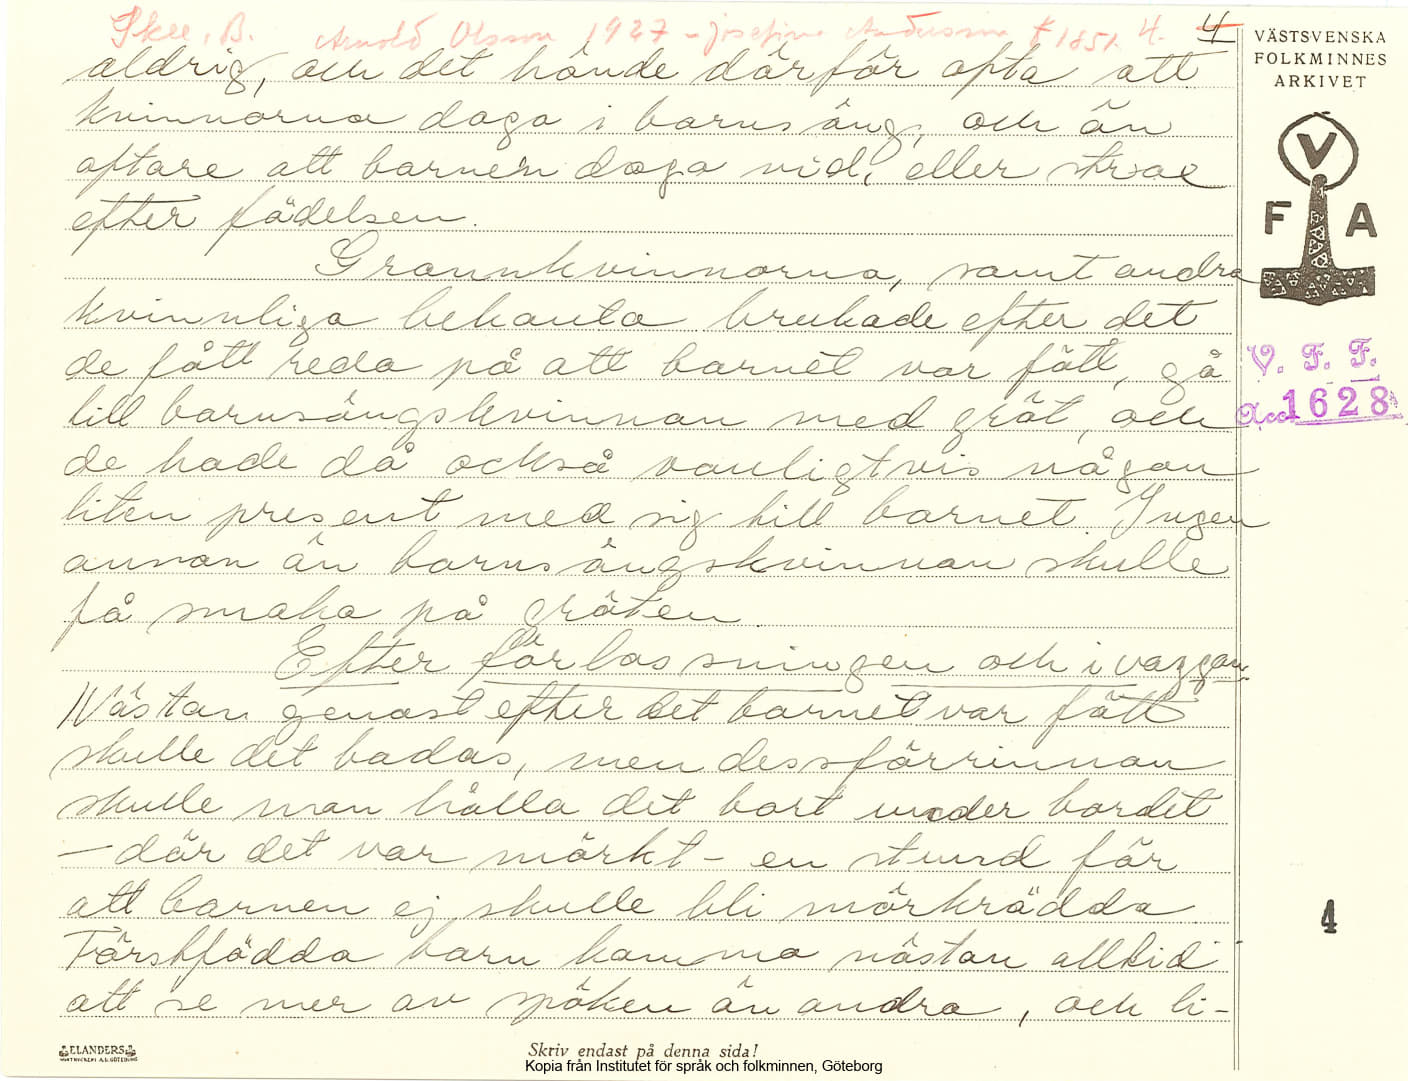 Skee, B. Arnold Olsson 1927 - Josefine Andersson f 1851. 4.
4
aldrig, och det hände därför ofta att
kvinnorna dogo i barnsäng, och än
oftare att barnen dogo vid, eller strax
efter födelsen.
Grannkvinnorna, samt andra
kvinnliga bekanta brukade efter det
de fått reda på att barnet var fött, gå
till barnsängskvinnan med gröt, och
de hade då också vanligtvis någon
liten present med sig till barnet. Ingen
annan än barnsängskvinnan skulle
få smaka på gröten.
Efter förlossningen och i vaggan.
Nästan genast efter det barnet var fött
skulle det badas, men dessförrinnan
skulle man hålla det bort under bordet
– där det var mörkt – en stund för
att barnen ej skulle bli mörkrädda
Förstfödda barn komma nästan alltid
att se mer av spöken än andra, och li-
VÄSTSVENSKA
FOLKMINNES
ARKIVET
V
F A
V. F. F.
Acc. 1628
4
ELANDERS
Skriv endast på denna sida!
Kopia från Institutet för språk och folkminnen, Göteborg